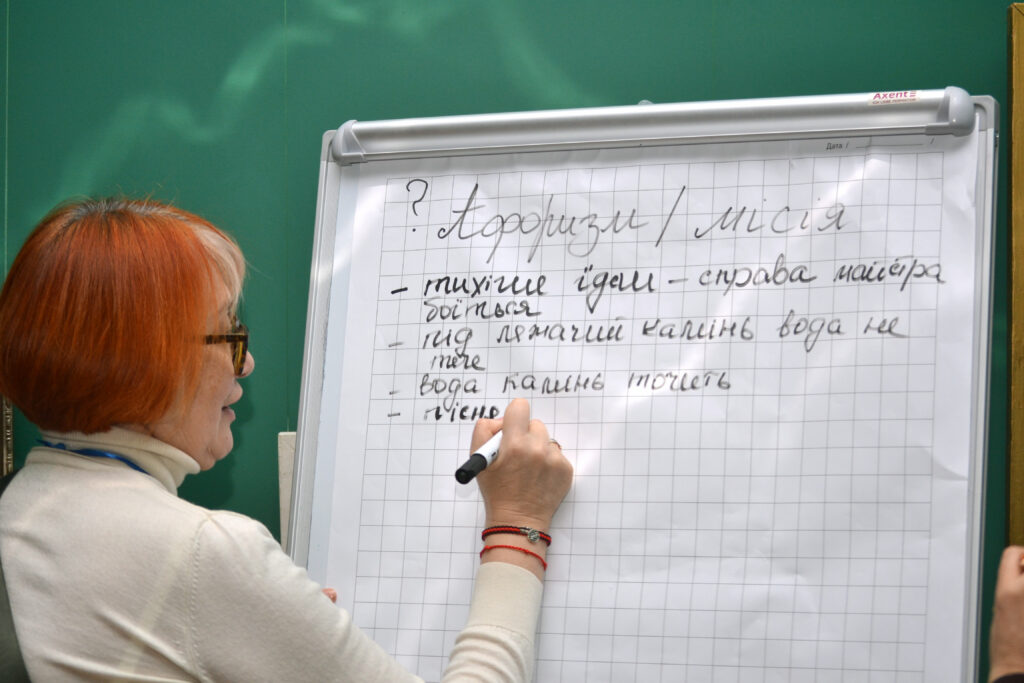 Axent
Дата /
? Афоризм / місія
- тихіше їдеш - справа майстра
боїться
- під лежачий камінь вода не
тече
- вода камінь точить
- пісня